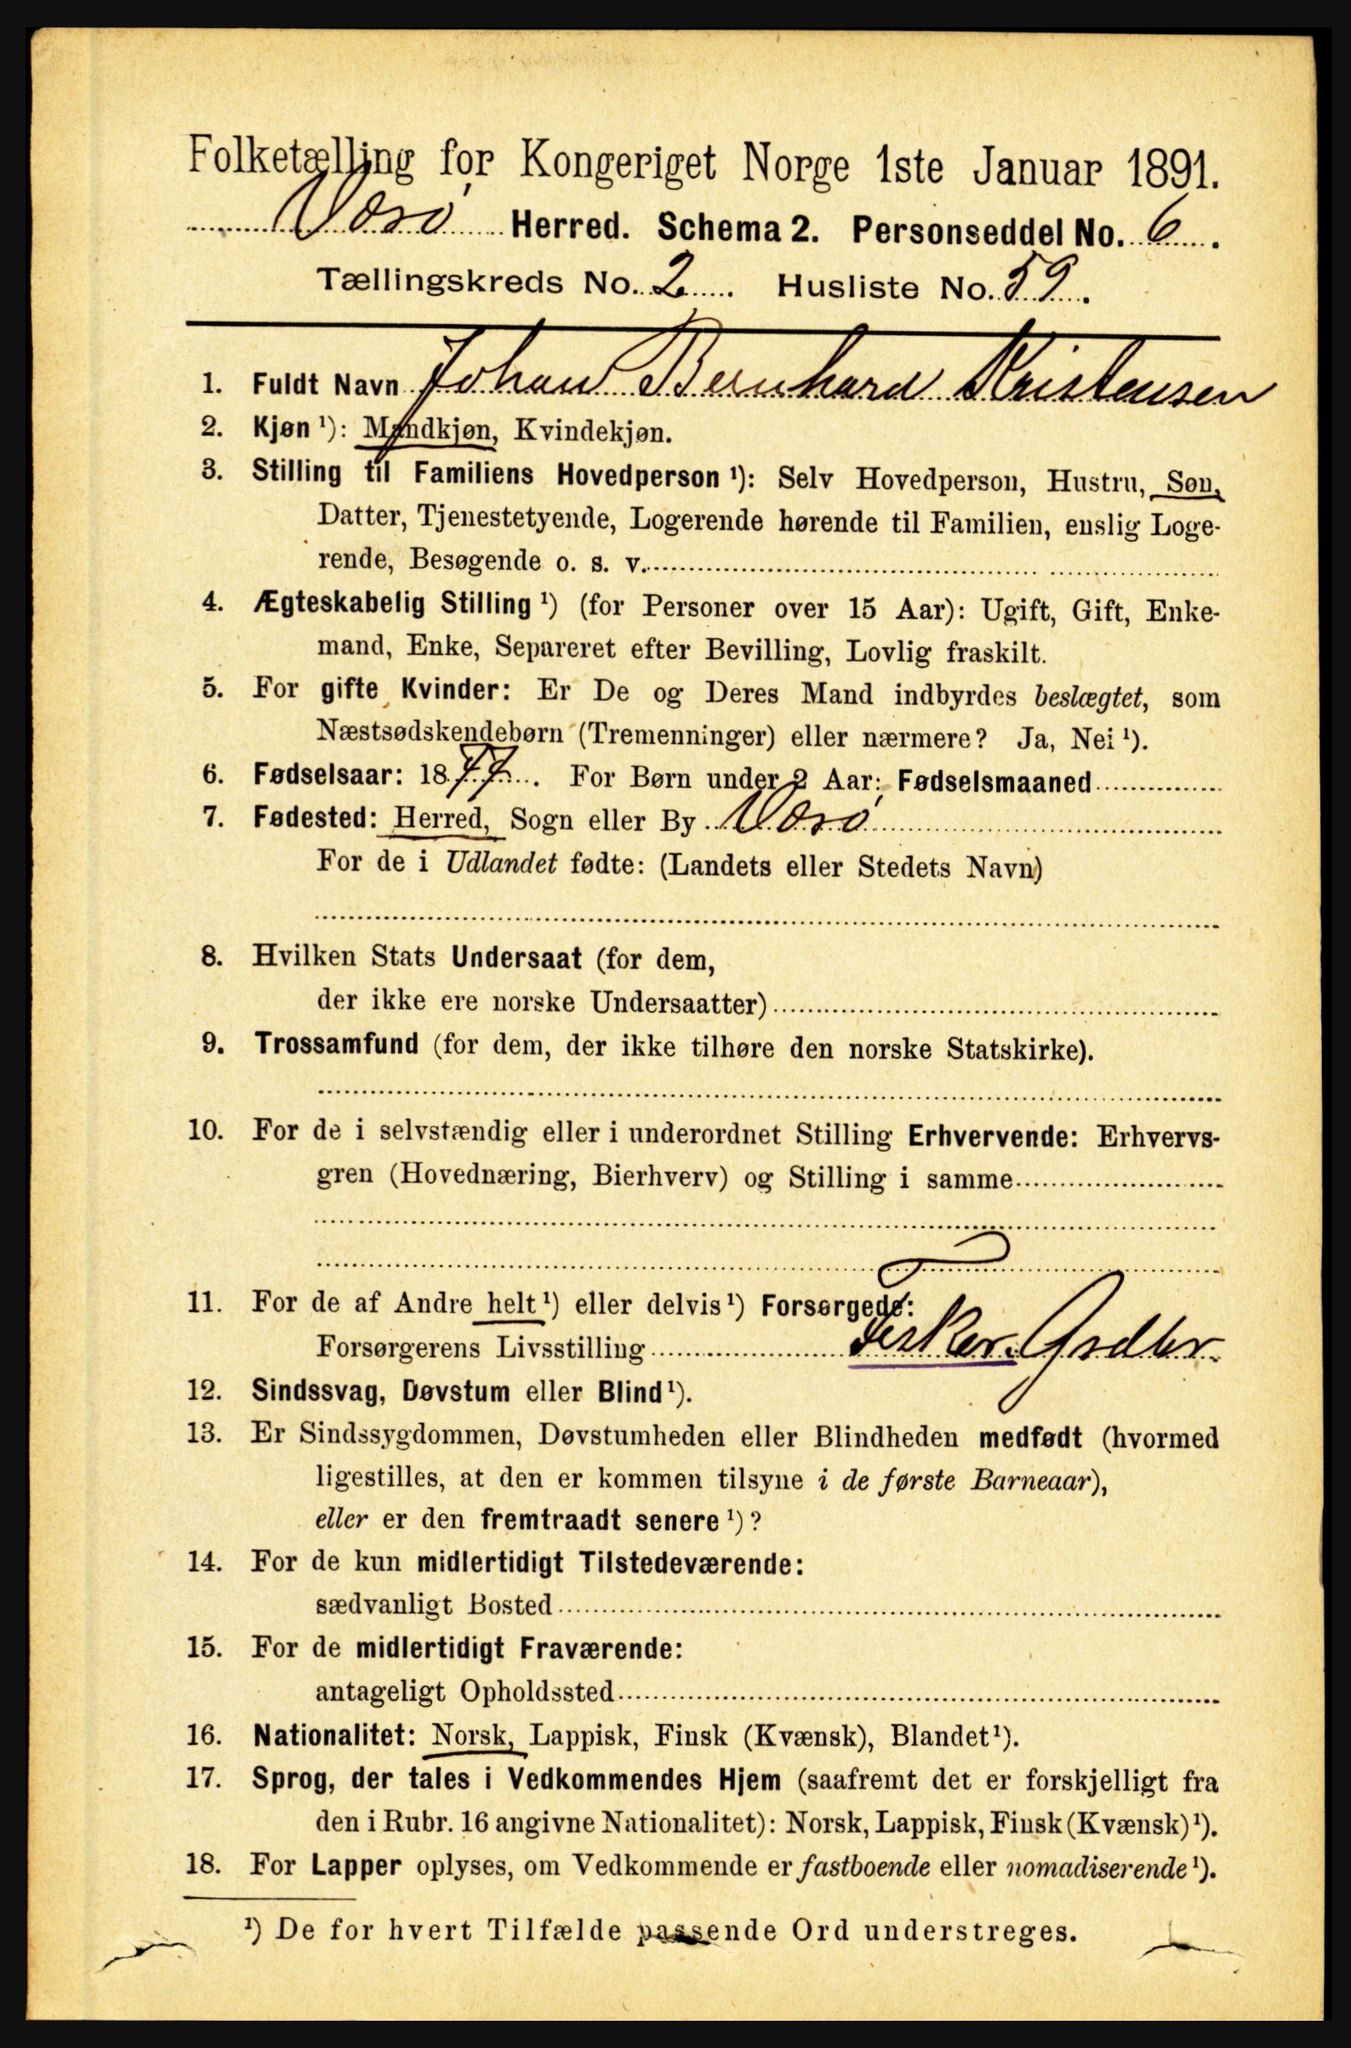 Folketælling for Kongeriget Norge 1ste Januar 1891.
Værø Herred. Schema 2. Personseddel No. 6.
Tællingskreds No. 2. Husliste No. 59.
1. Fuldt Navn Johan Bernhard Kristensen
2. Kjøn ¹): Mandkjøn, Kvindekjøn.
3. Stilling til Familiens Hovedperson ¹): Selv Hovedperson, Hustru, Søn,
Datter, Tjenestetyende, Logerende hørende til Familien, enslig Loge-
rende, Besøgende o. s. v.
4. Ægteskabelig Stilling ¹) (for Personer over 15 Aar): Ugift, Gift, Enke-
mand, Enke, Separeret efter Bevilling, Lovlig fraskilt.
5. For gifte Kvinder: Er De og Deres Mand indbyrdes beslægtet, som
Næstsødskendebørn (Tremenninger) eller nærmere? Ja, Nei ¹).
6. Fødselsaar: 1877. For Børn under 2 Aar: Fødselsmaaned
7. Fødested: Herred, Sogn eller By Værø
For de i Udlandet fødte: (Landets eller Stedets Navn)
8. Hvilken Stats Undersaat (for dem,
der ikke ere norske Undersaatter)
9. Trossamfund (for dem, der ikke tilhøre den norske Statskirke).
10. For de i selvstændig eller i underordnet Stilling Erhvervende: Erhvervs-
gren (Hovednæring, Bierhverv) og Stilling i samme
11. For de af Andre helt ¹) eller delvis ¹) Forsørgede:
Forsørgerens Livsstilling Fisker. Grdbr.
12. Sindssvag, Døvstum eller Blind ¹).
13. Er Sindssygdommen, Døvstumheden eller Blindheden medfødt (hvormed
ligestilles, at den er kommen tilsyne i de første Barneaar),
eller er den fremtraadt senere ¹)?
14. For de kun midlertidigt Tilstedeværende:
sædvanligt Bosted
15. For de midlertidigt Fraværende:
antageligt Opholdssted
16. Nationalitet: Norsk, Lappisk, Finsk (Kvænsk), Blandet ¹).
17. Sprog, der tales i Vedkommendes Hjem (saafremt det er forskjelligt fra
den i Rubr. 16 angivne Nationalitet): Norsk, Lappisk, Finsk (Kvænsk) ¹).
18. For Lapper oplyses, om Vedkommende er fastboende eller nomadiserende ¹).
¹) De for hvert Tilfælde passende Ord understreges.